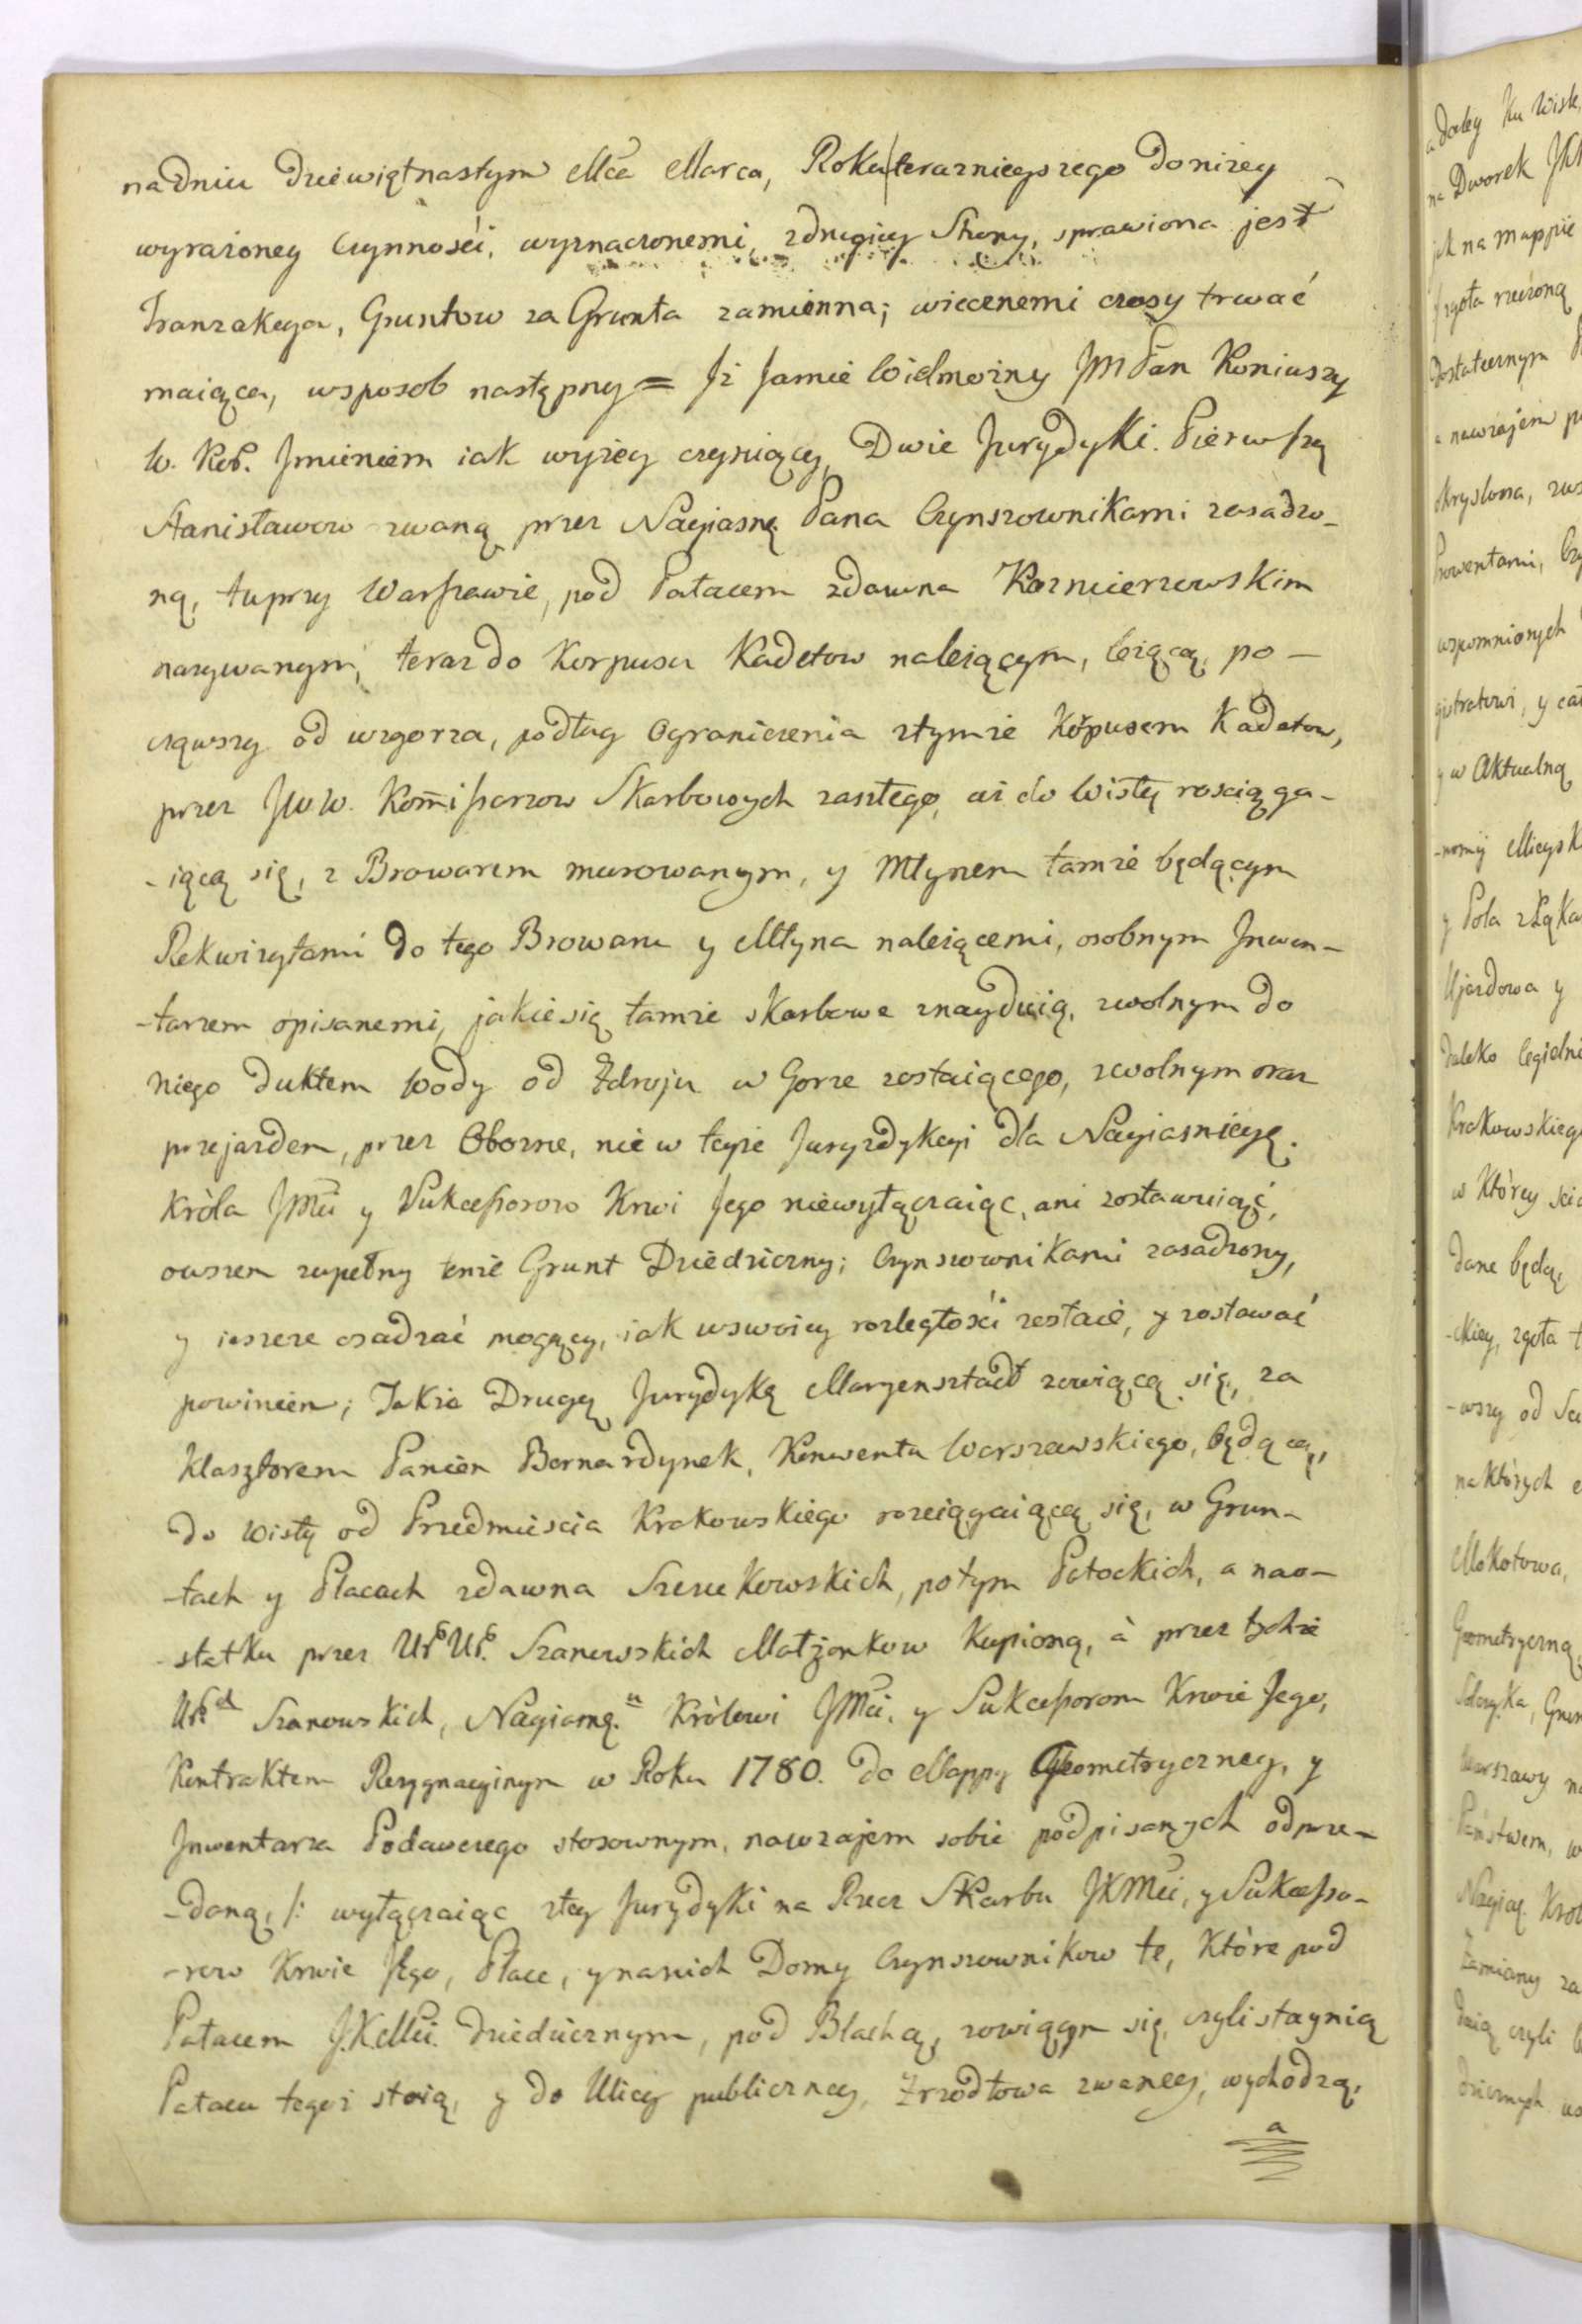 na dniu Dziewiętnastym Mca Marca, Roku teraznieyszego do niżey
wyrażoney Czynności, wyznaczonemi, z drugiey Strony, sprawiona jest
Tranzakcya, Gruntow za Grunta zamienna; wieczenemi czasy trwać
maiąca, w sposob następny = Iż Jaśnie Wielmożny JM Pan Koniuszy
W. Kor. Imieniem iak wyżey czyniący, Dwie Jurydyki. Pierwszą
Stanisławow zwaną przez Nayiasnę. Pana Czynszownikami zasadzo-
ną, tu przy Warszawie, pod Pałacem zdawna Kazmierzowskim
nazywanym, teraz do Korpusu Kadetow należącym, leżącą, po-
cząwszy od wzgorza, podług Ograniczenia z tymże Korpusem Kadetow,
przez JWW. Kommissarzow Skarbowych zaszłego, aż do Wisły rosciąga-
-iącą się, z Browarem murowanym, y Młynem tamże będącym
Rekwizytami do tego Browaru y Młyna należącemi, osobnym Inwen-
-tarzem opisanemi, jakie się tamże skarbowe znayduią, z wolnym do
niego duktem Wody od Zdroju w Gorze zostaiącego, z wolnym oraz
przejazdem, przez Oborne, nie w teyże Juryzdykcyi dla Nayiasnieyszę.
Króla JMci y Sukcessorow Krwi Jego niewyłączaiąc, ani zostawuiąć,
owszem zupełny tenże Grunt Dziedziczny; Czynszownikami zasadzony,
y ieszcze osadzać mogący, iak w swoiey rozległości zostaie, y zostawać
powinien; Także Drugą Jurydykę Maryensztadt zowiącą się, za
Klasztorem Panien Bernardynek, Konwentu Warszawskiego, będącą,
do Wisły od Przedmieścia Krakowskiego rozciągaiącą się, w Grun-
-tach y Placach zdawna Szeuckowskich, potym Potockich, a nao-
-statku przez Ur. Ur. Szanowskich Małżonkow Kupioną, à przez tychże
Ur. Szanowskich, Nayiasnę. Królowi JMci, y Sukcessorom Krwie Jego,
Kontraktem Rezygnacyinym w Roku 1780. do Mappy Geometryczney, y
Inwentarza Podawczego stosownym, nawzajem sobie podpisanych odprze-
-daną, /: wyłączaiąc z tey Jurydyki na Rzecz Skarbu JKMci, y Sukcesso-
-row Krwie Jego, Place, y na nich Domy Czynszownikow te, Które pod
Pałacem J.K.Mci. dziedzicznym, pod Blachą, zowiącym się, czyli staynią
Pałacu tegoż stoią, y do Ulicy publiczney, Zrzodłowa zwaney, wychodzą,
a